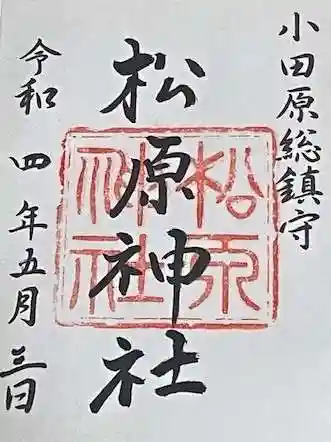 小田原総鎮守
松原神社
松原神社
令和四年五月三日